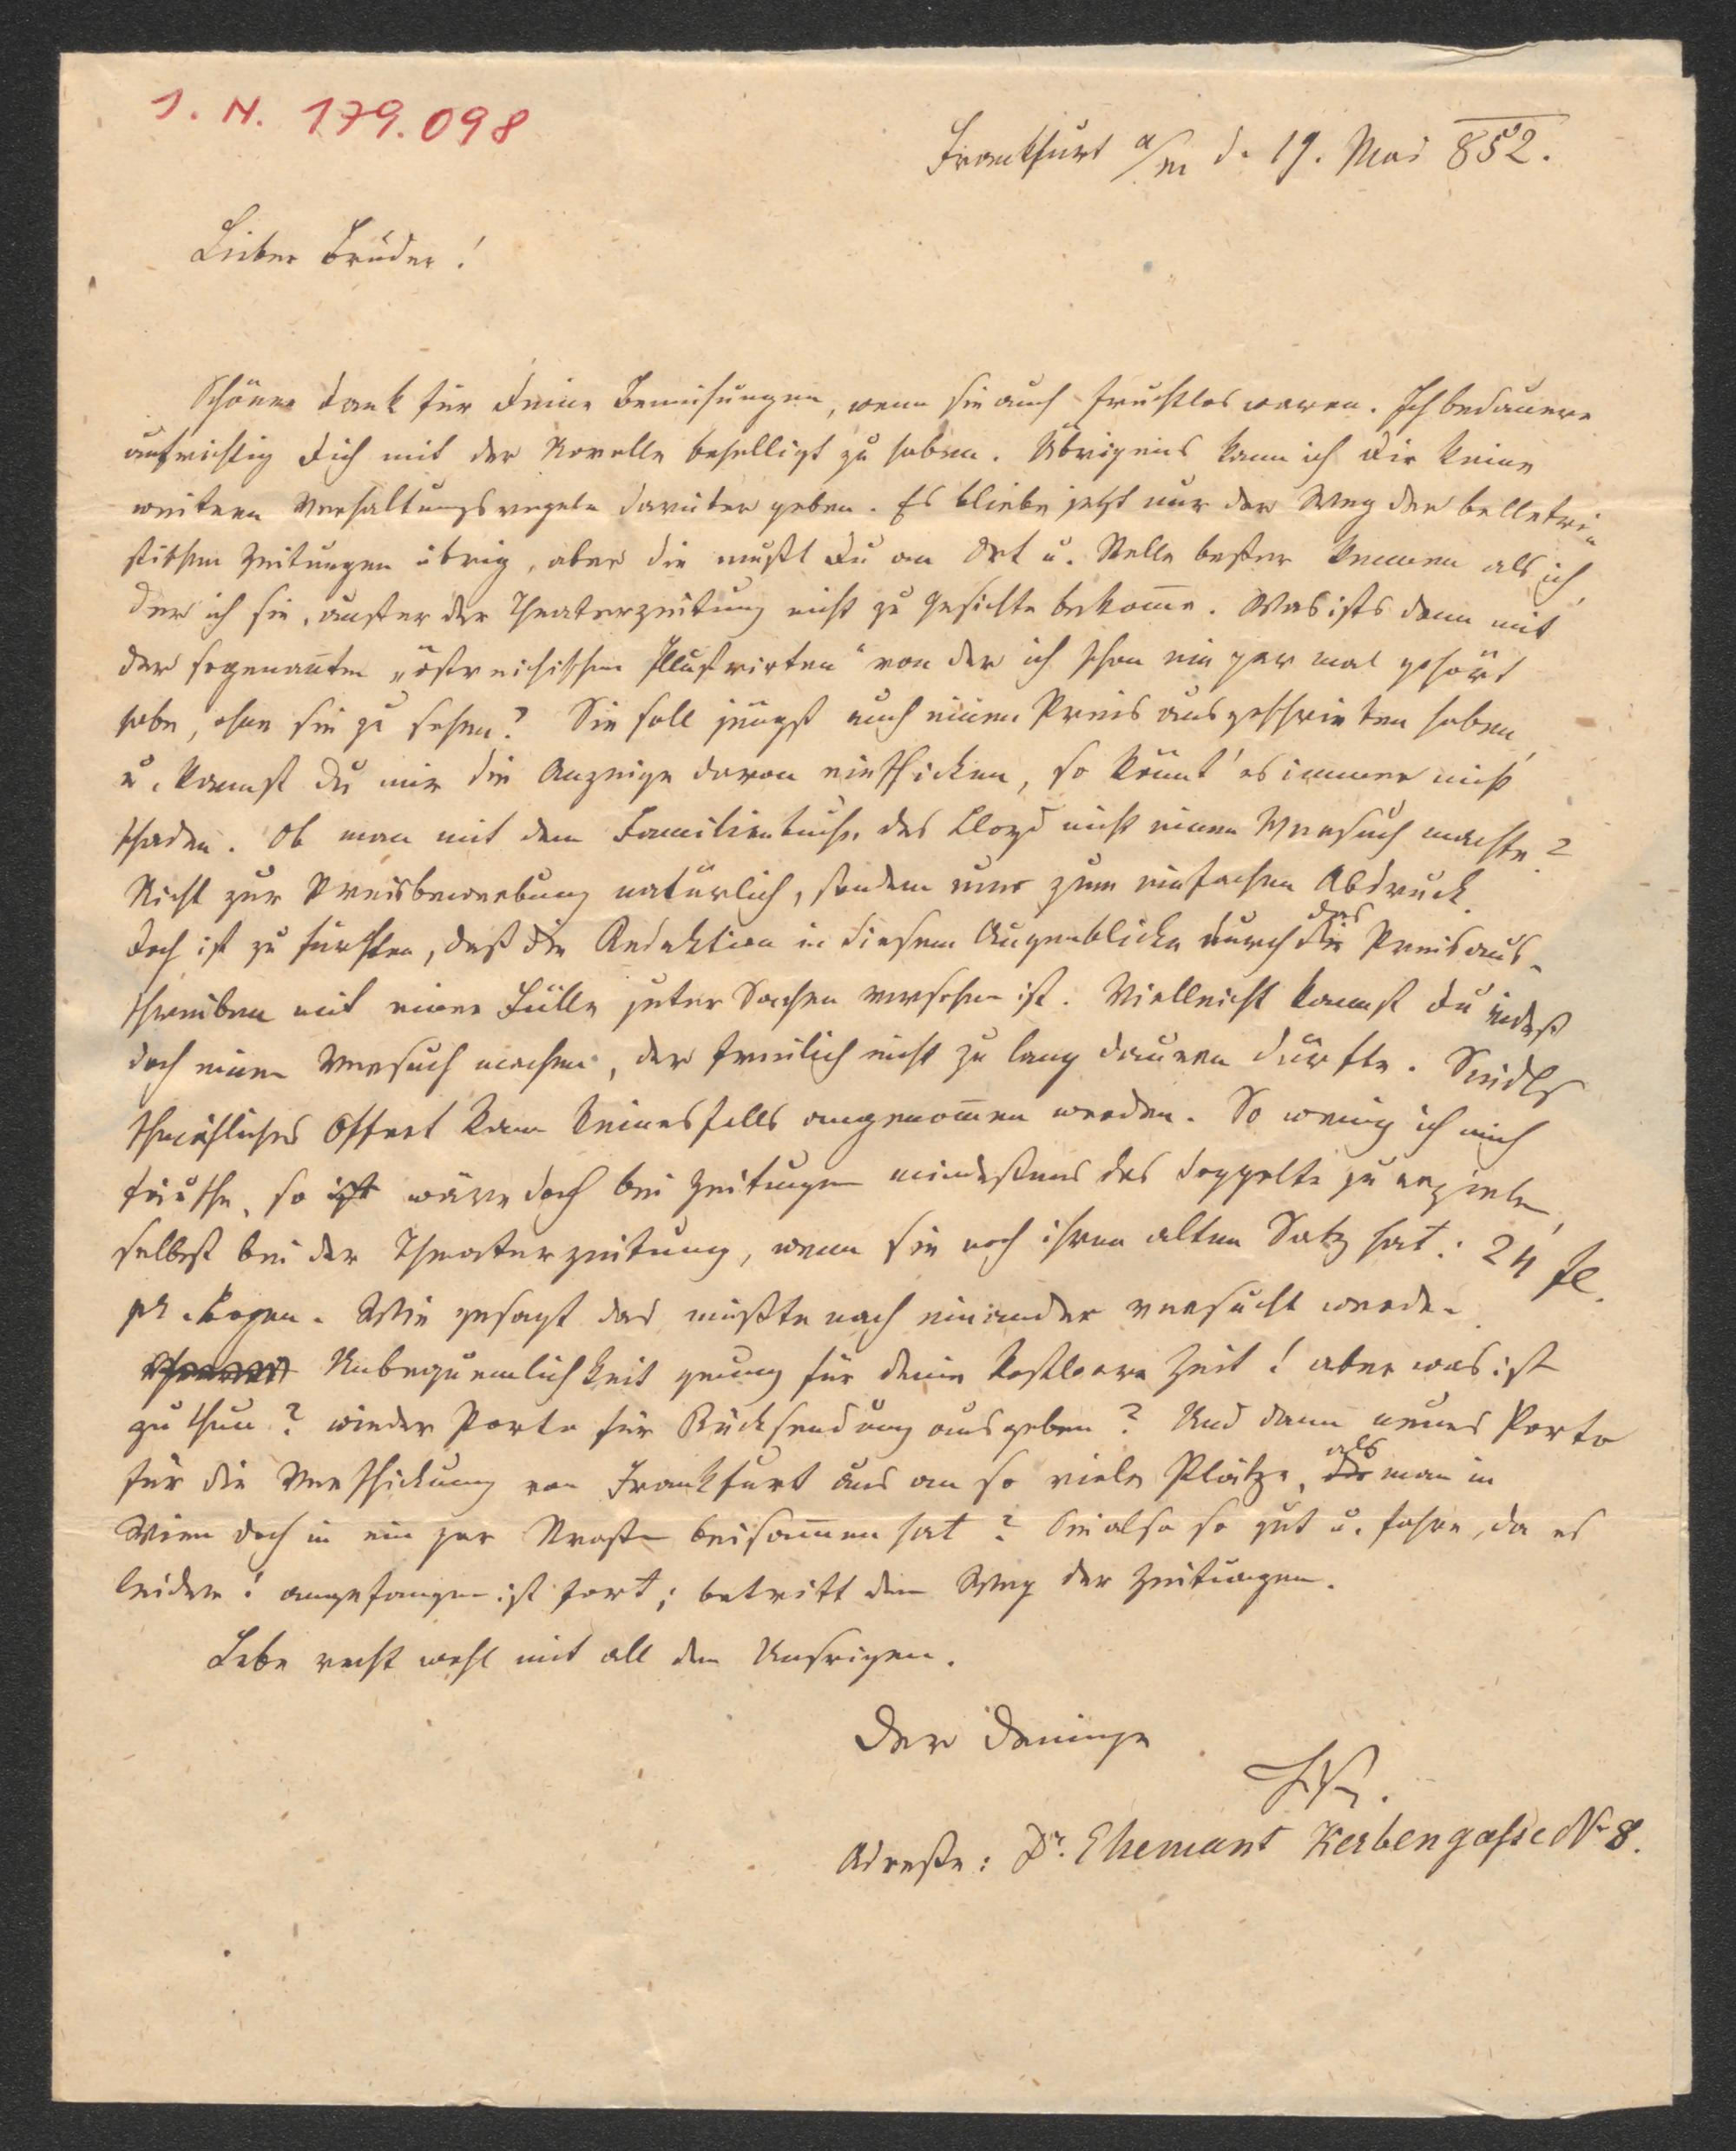 J. N. 179.098
Frankfurt a/m d. 19. Mai 852.
Lieber Bruder!
Schönen Dank für Deine Bemühungen, wenn sie auch fruchtlos waren. Ich bedauere
aufrichtig Dich mit der Novelle behelligt zu haben. Übrigens kann ich Dir keine
weitern Verhaltungsregeln darüber geben. Es bliebe jetzt nur der Weg der belletri-
stischen Zeitungen übrig, aber die mußt Du an Ort u. Stelle beßer kennen als ich,
der ich sie, außer der Theaterzeitung nicht zu Gesichte bekom̅e. Was ists denn mit
der sogenan̅ten „östreichischen Illustrirten“ von der ich schon ein par mal gehört
habe, ohne sie zu sehen? Sie soll jüngst auch einen Preis ausgeschrieben haben,
u. kannst Du mir die Anzeige davon einschicken, so könnt' es immer nicht
schaden. Ob man mit dem Familienbuche des Lloyd nicht einen Versuch machte?
Nicht zur Preisbewerbung natürlich, sondern nur zum einfachen Abdruck.
Doch ist zu fürchten, daß die Redaktion in diesem Augenblicke durch die das Preisaus-
schreiben mit einer Fülle guter Sachen versehen ist. Vielleicht kannst Du indeß
doch einen Versuch machen, der freilich nicht zu lang dauern dürfte. Seidls
schmähliches Offert kann keinesfalls angenom̅en werden. So wenig ich mich
täusche, so ist wäre doch bei Zeitungen mindestens das doppelte zu erzielen,
selbst bei der Theaterzeitung, wenn sie noch ihren alten Satz hat: 24 fl.
pr. Bogen. Wie gesagt das müßte nach einander versucht werden.
Unbequemlichkeit genug für deine kostbare Zeit! aber was ist
zu thun? wieder Porto für Rücksendung ausgeben? Und dann neues Porto
für die Verschickung von Frankfurt aus an so viele Plätze, die als man in
Wien doch in ein par Straßen beisam̅en hat? Sei also so gut u. fahre, da es
leider! angefangen ist fort; betritt den Weg der Zeitungen.
Lebe recht wohl mit all den Unsrigen.
Der Deinige
Adreße: Dr. Ehemant Kerbengasse No 8.